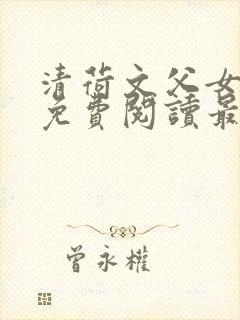 清荷文父女
免費閱讀最
曾永權